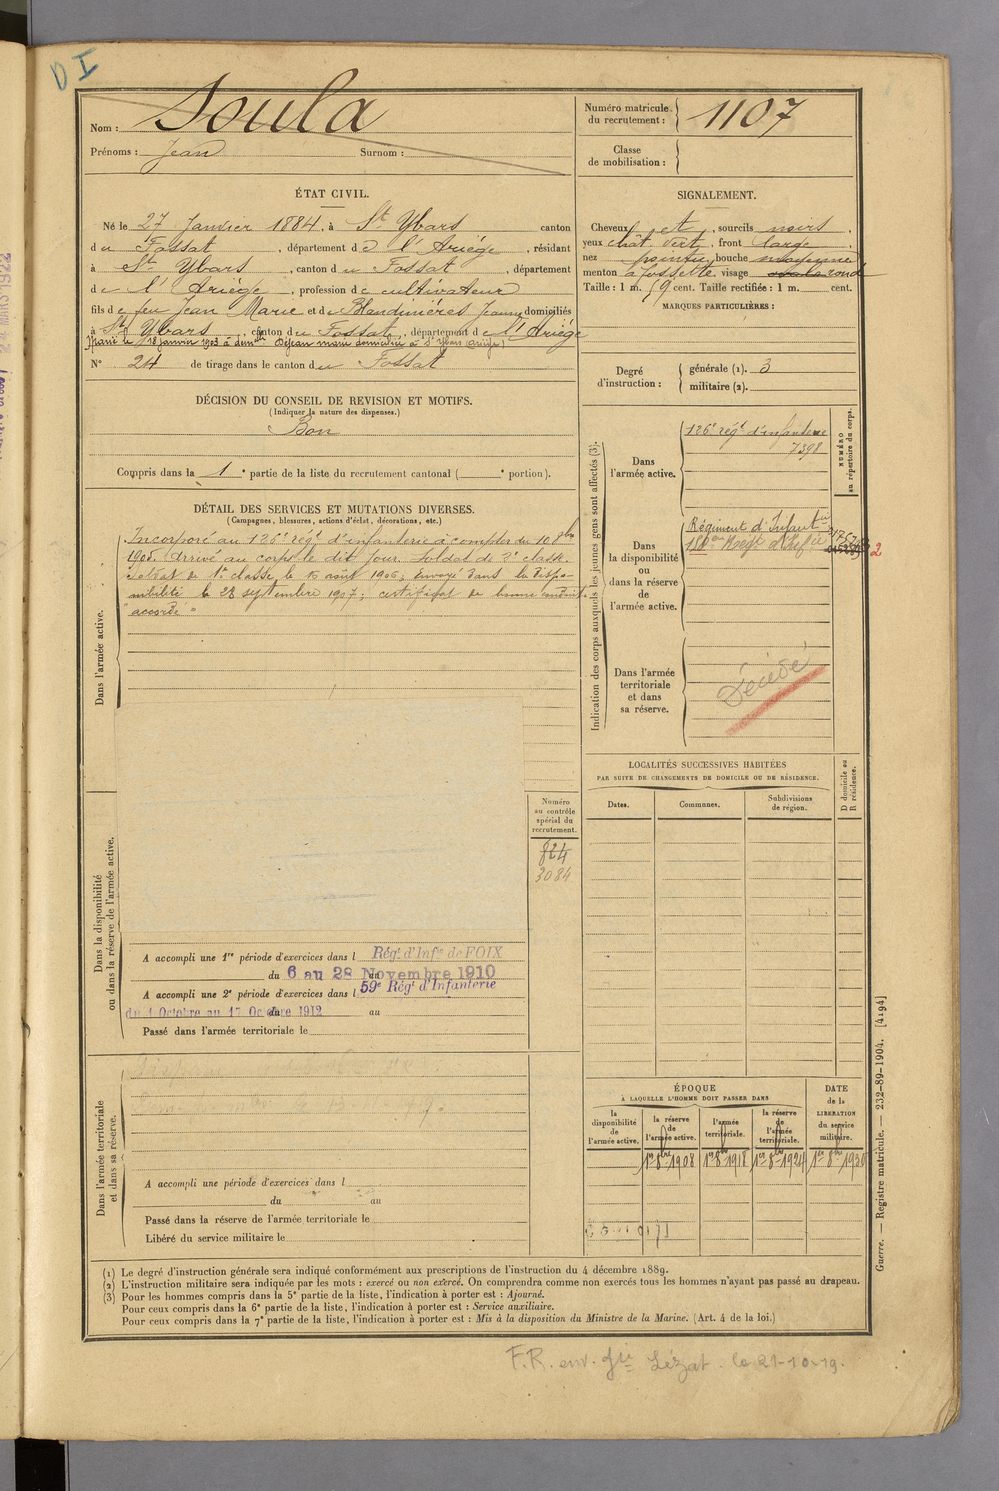 D I
Nom : Soula
Prénoms : Jean Surnom :
Numéro matricule du recrutement : 1107
Classe de mobilisation :
ÉTAT CIVIL.
Né le 27 Janvier 1884, à St Ybars canton
du Fossat, département de l'Ariège, résidant
à St Ybars, canton du Fossat, département
de l'Ariège, profession de cultivateur
fils de feu Jean Marie et de Blandinières Jeanne domiciliés
à St Ybars, canton du Fossat, département de l'Ariège
Marié le 18 janvier 1903 à dem^elle Dejean marie domiciliée à St Ybars (Ariège)
N° 24 de tirage dans le canton du Fossat
SIGNALEMENT.
Cheveux et, sourcils noirs,
yeux chât. vert, front large,
nez pointu, bouche moyenne
menton à fossette, visage ovale rond
Taille : 1 m. 59 cent. Taille rectifiée : 1 m. cent.
MARQUES PARTICULIÈRES :
Degré d'instruction : générale (1). 3
militaire (2).
DÉCISION DU CONSEIL DE REVISION ET MOTIFS.
(Indiquer la nature des dispenses.)
Bon
Compris dans la 1e partie de la liste du recrutement cantonal ( e portion).
DÉTAIL DES SERVICES ET MUTATIONS DIVERSES.
(Campagnes, blessures, actions d'éclat, décorations, etc.)
Dans l'armée active.
Incorporé au 126e régt d'infanterie à compter du 10 8bre
1905. Arrivé au corps le dit jour. Soldat de 2e classe.
Soldat de 1re classe le août 1906; envoyé dans la dispo-
nibilité le 28 septembre 1907; certificat de bonne conduite
"accordé"
Indication des corps auxquels les jeunes gens sont affectés (3).
NUMÉRO au répertoire du corps.
Dans l'armée active.
126e régt d'infanterie
7398
Dans la disponibilité ou dans la réserve de l'armée active.
Régiment d'Infantie
2
Dans l'armée territoriale et dans sa réserve.
Décédé
LOCALITÉS SUCCESSIVES HABITÉES
PAR SUITE DE CHANGEMENTS DE DOMICILE OU DE RÉSIDENCE.
D domicile ou R résidence.
Dates. Communes. Subdivisions de région.
Dans la disponibilité ou dans la réserve de l'armée active.
Numéro au contrôle spécial du recrutement.
824
3084
A accompli une 1re période d'exercices dans l Régt d'Infie de FOIX
du 6 au 28 Novembre 1910
A accompli une 2e période d'exercices dans l 59e Régt d'Infanterie
du 1 Octobre au 17 Octobre 1912 au
Passé dans l'armée territoriale le
Dans l'armée territoriale et dans sa réserve.
A accompli une période d'exercices dans l
du au
Passé dans la réserve de l'armée territoriale le
Libéré du service militaire le
ÉPOQUE
À LAQUELLE L'HOMME DOIT PASSER DANS
la disponibilité de l'armée active.
la réserve de l'armée active.
l'armée territoriale.
la réserve de l'armée territoriale.
DATE de la LIBERATION du service militaire.
1er 8bre 1908 1er 8bre 1918 1er 8bre 1924 1er 8bre 1930
Guerre. — Registre matricule. — 232-89-1904. [4194]
(1) Le degré d'instruction générale sera indiqué conformément aux prescriptions de l'instruction du 4 décembre 1889.
(2) L'instruction militaire sera indiquée par les mots : exercé ou non exercé. On comprendra comme non exercés tous les hommes n'ayant pas passé au drapeau.
(3) Pour les hommes compris dans la 5e partie de la liste, l'indication à porter est : Ajourné.
Pour ceux compris dans la 6e partie de la liste, l'indication à porter est : Service auxiliaire.
Pour ceux compris dans la 7e partie de la liste, l'indication à porter est : Mis à la disposition du Ministre de la Marine. (Art. 4 de la loi.)
F.R. env. Gie Lézat. le 21-10-19.
24 MARS 1922